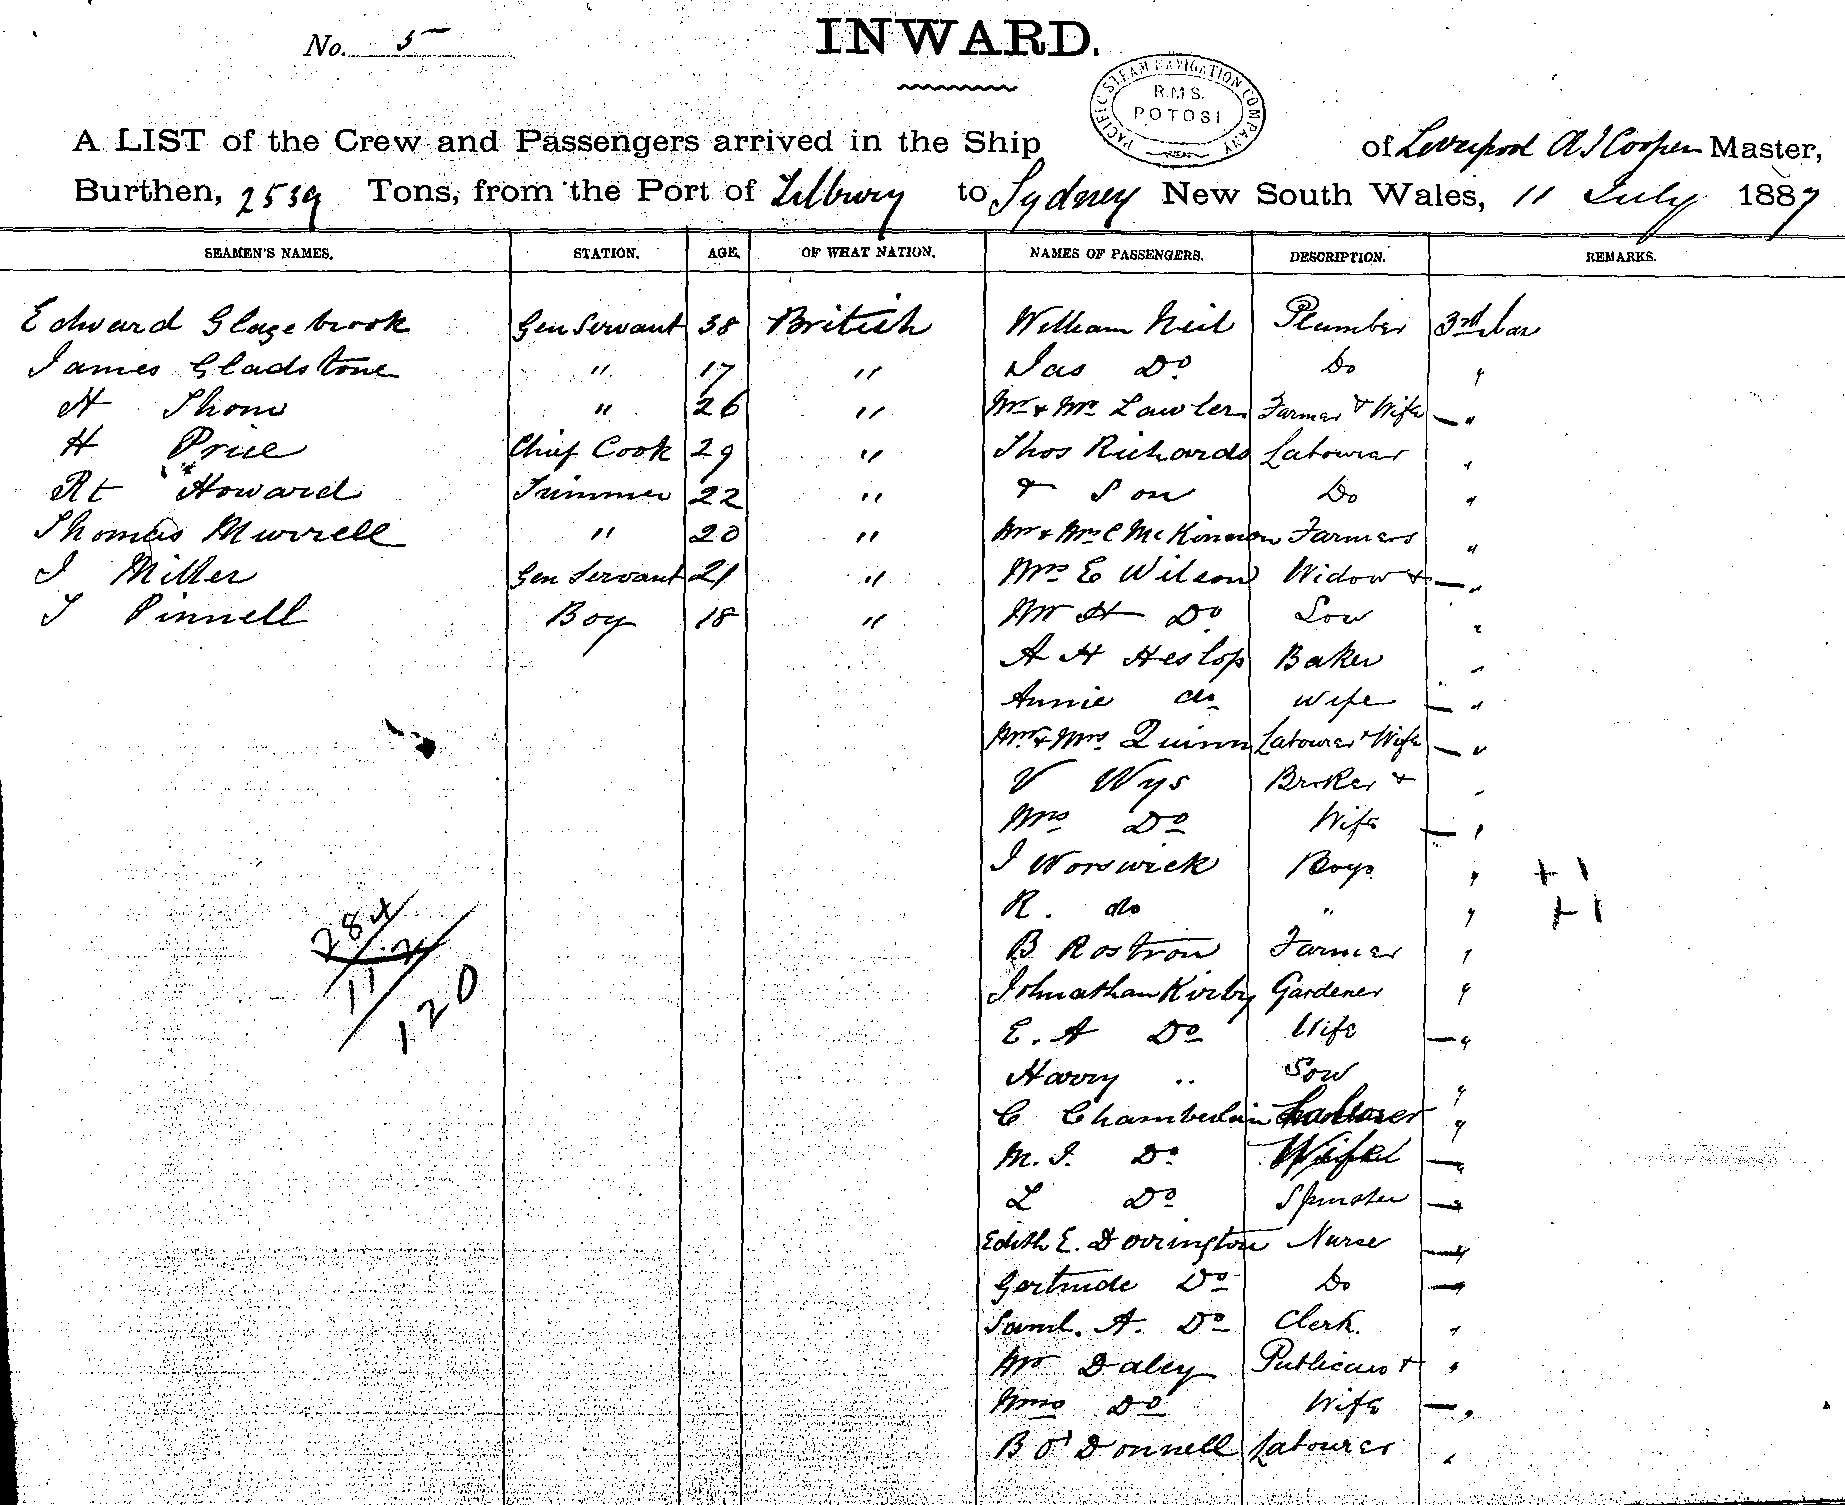 No. 5
INWARD.
PACIFIC STEAM NAVIGATION COMPANY
R.M.S.
POTOSI
A LIST of the Crew and Passengers arrived in the Ship of Liverpool A J Cooper Master,
Burthen, 2539 Tons, from the Port of Tilbury to Sydney New South Wales, 11 July 1887
SEAMEN'S NAMES. STATION. AGE. OF WHAT NATION. NAMES OF PASSENGERS. DESCRIPTION. REMARKS.
Edward Glazebrook Gen Servant 38 British William Neil Plumber 3rd
James Gladstone " 17 " Jas Do Do "
H Thom " 26 " Mr & Mrs Lawler Farmer & Wife — "
H Price Chief Cook 29 " Thos Richards Labourer "
Rt Howard Trimmer 22 " & Son Do "
Thomas Murrell " 20 " Mr & Mrs C McKinnon Farmers "
J Miller Gen Servant 21 " Mrs E Wilson Widow & — "
T Pinnell Boy 18 " Mr H Do Son "
A H Heslop Baker "
Annie do Wife — "
Mr & Mrs Quinn Labourer & Wife — "
V Wys Broker & "
Mrs Do Wife — "
J Worswick Boys " + 1
R. do " " + 1
B Rostron Farmer "
Johnathan Kirby Gardener "
E. A Do Wife — "
Harry .. Son "
C Chamberlain Labourer "
M. J. Do Wife — "
L Do Spinster — "
Edith E. Dorrington Nurse — "
Gertrude Do Do — "
Saml. A. Do Clerk. "
Mr Daley Publican & "
Mrs Do Wife — "
B O'Donnell Labourer "
284
11
120